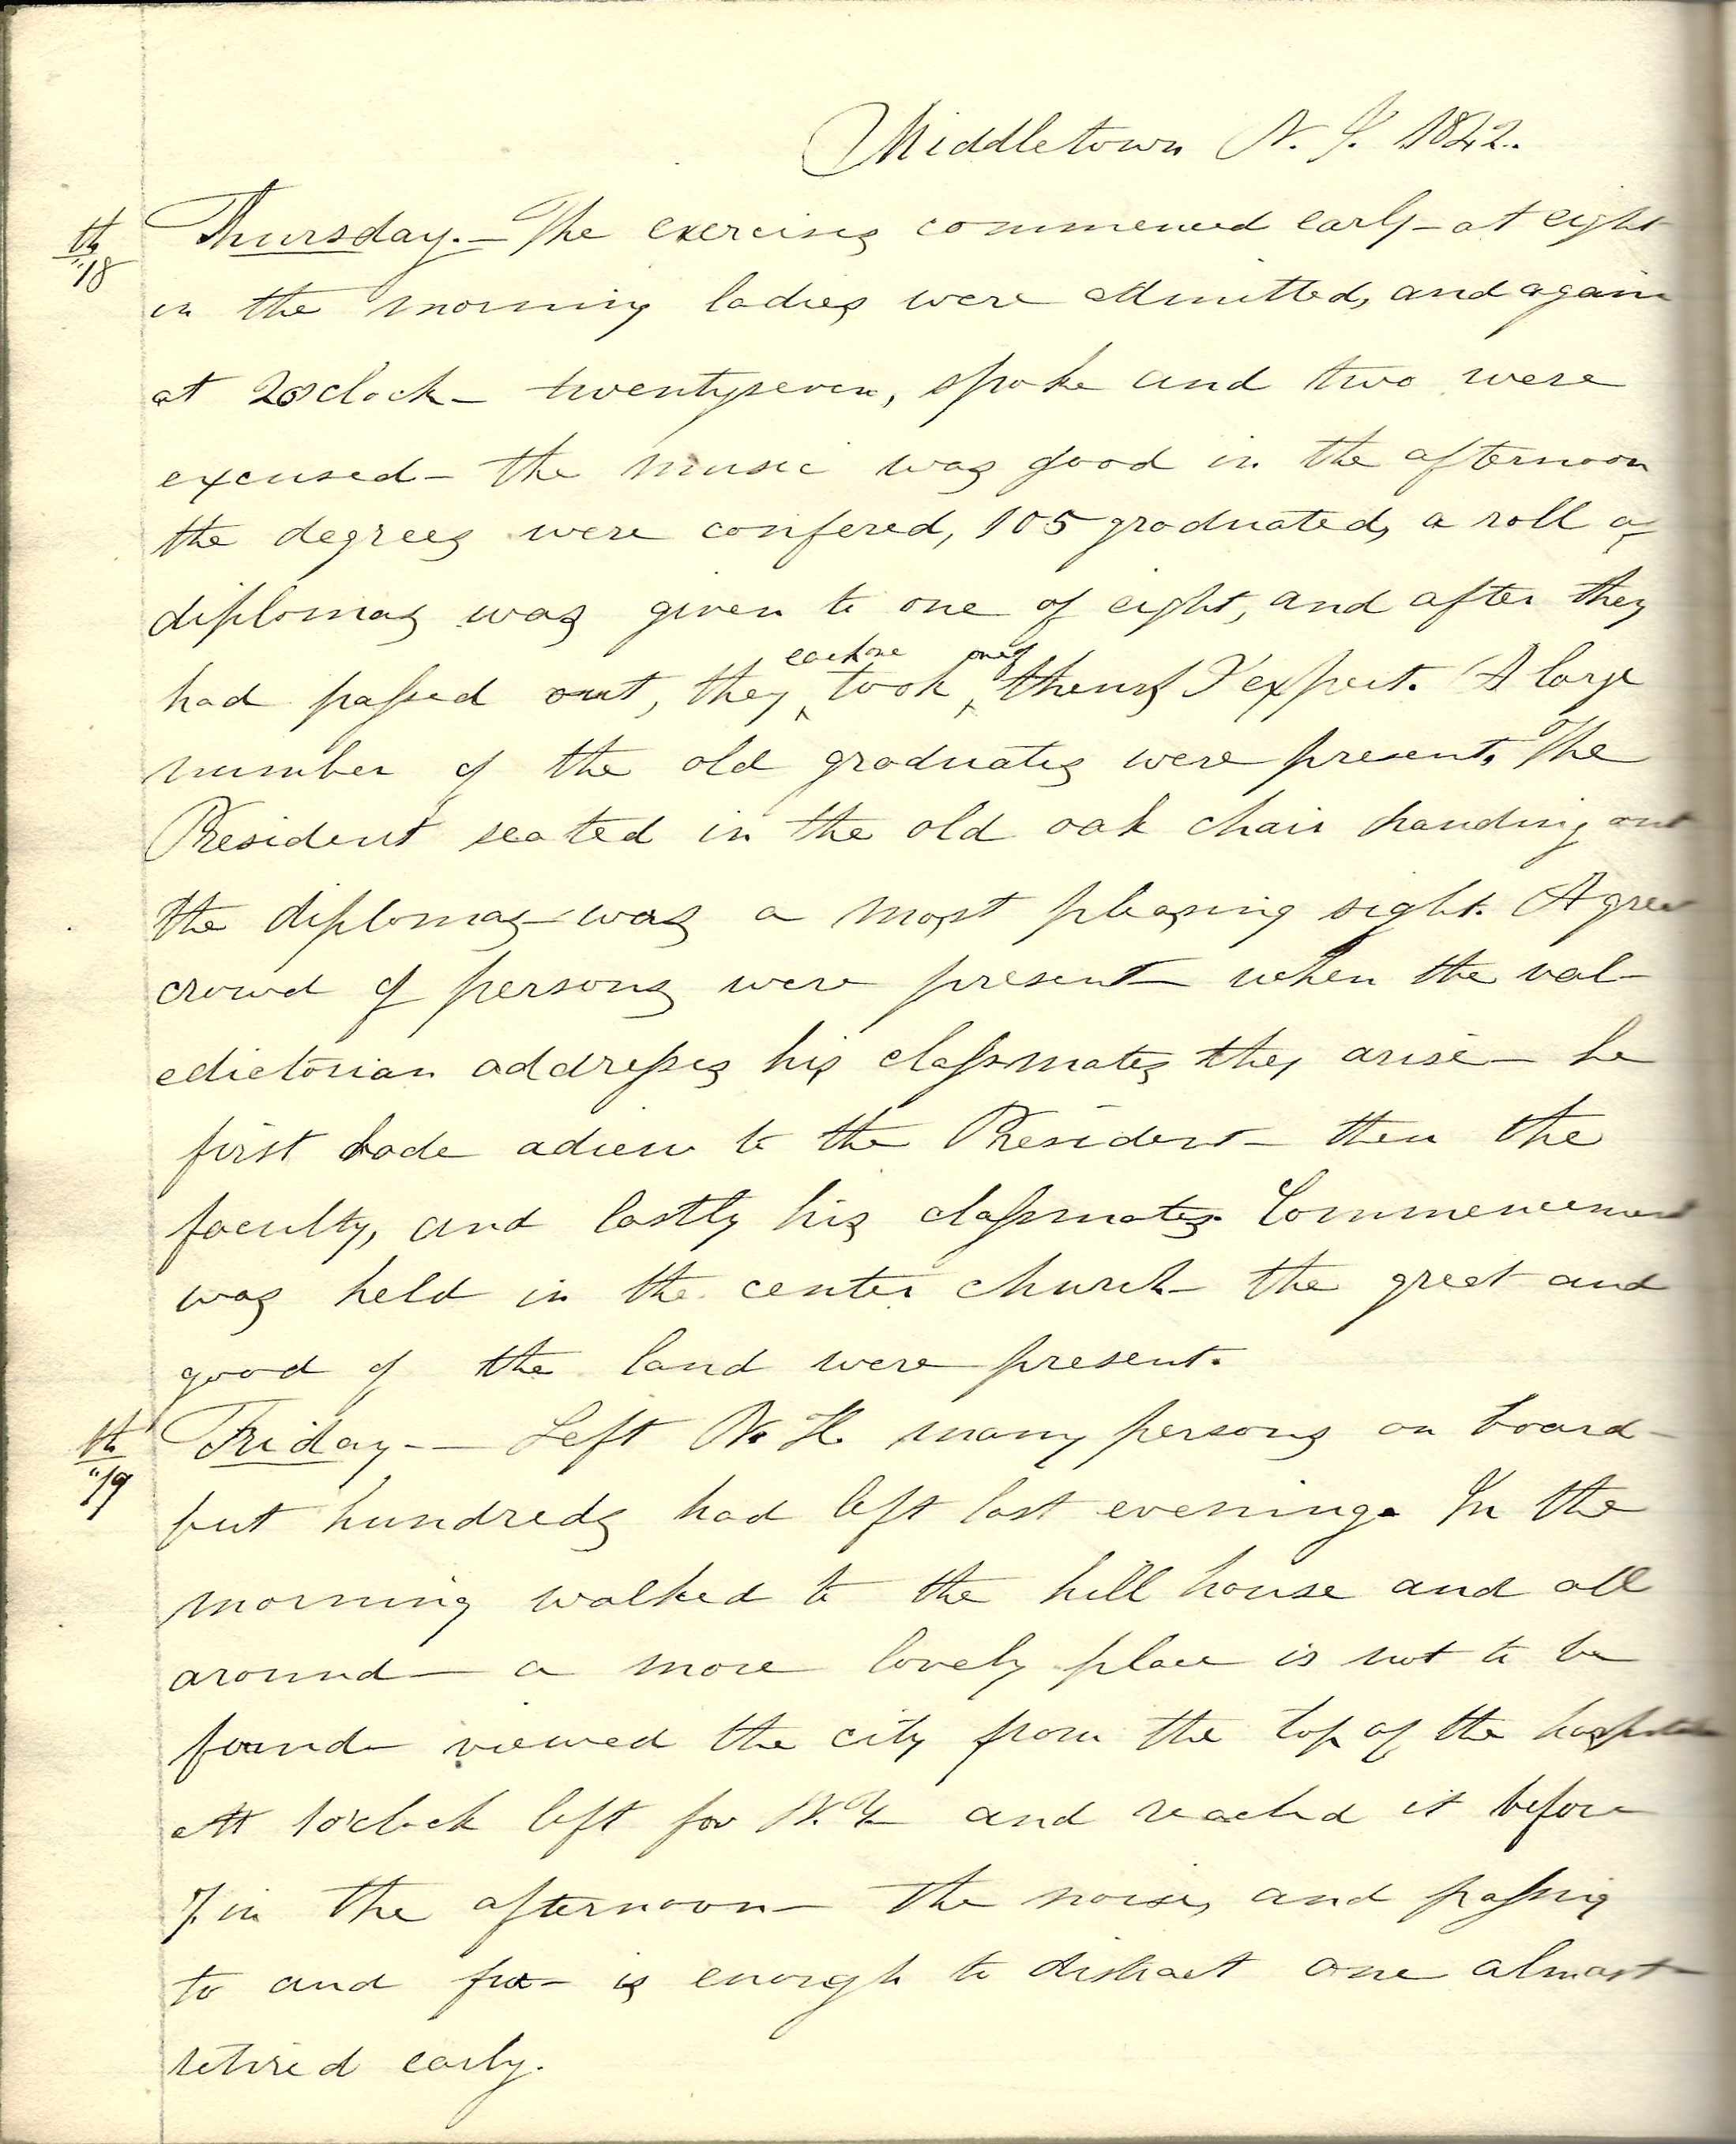 Middletown N. J. 1842.
th "18 Thursday. — The exercises commenced early – at eight
in the morning ladies were admitted, and again
at 2 oclock – twentyseven, spoke and two were
excused – the music was good in the afternoon
the degrees were confered, 105 graduated, a roll of
diplomas was given to one of eight, and after they
had passed out, they each one took one of theirs I expect. A large
number of the old graduates were present. The
President seated in the old oak chair handing out
the diplomas was a most pleasing sight. A great
crowd of persons were present – when the val-
edictorian addresses his classmates they arise – he
first bade adieu to the President – then the
faculty, and lastly his classmates. Commencement
was held in the center church – the great and
good of the land were present.
th "19 Friday. — Left N. H. many persons on board –
but hundreds had left last evening. In the
morning walked to the hill house and all
around – a more lovely place is not to be
found – viewed the city from the top of the hospital
At 1 o'clock left for N. Y. and reached it before
7 in the afternoon – the noise, and passing
to and fro – is enough to distract one almost –
retired early.